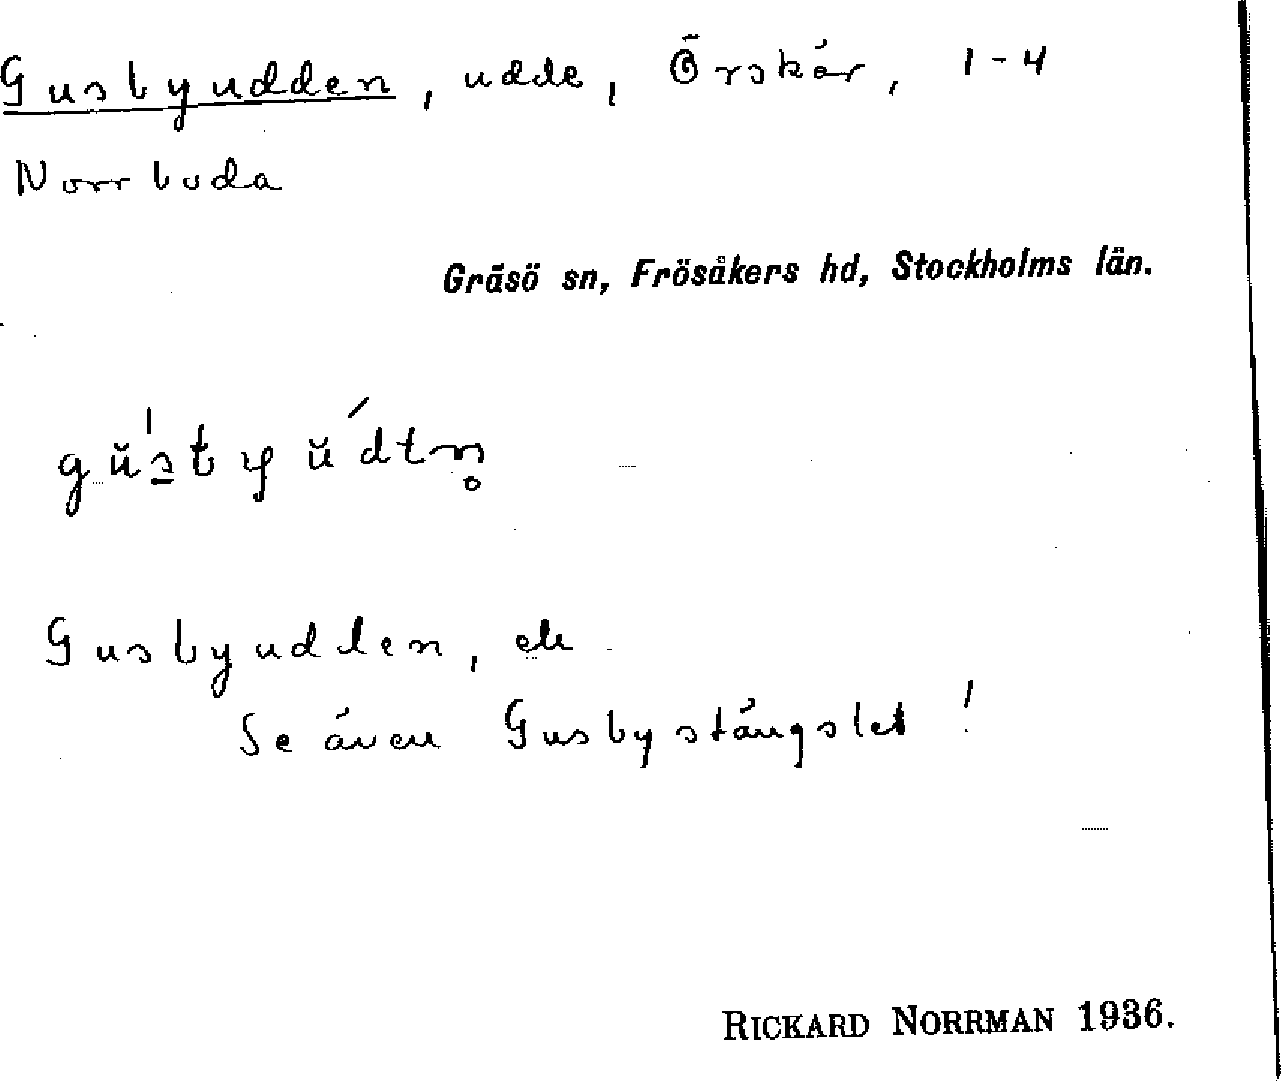 Gusbyudden, udde, Örskär, 1-4
Norrboda
Gräsö sn, Frösåkers hd, Stockholms län.
Gusbyudden, ek
Se även Gusbystängslet!
RICKARD NORRMAN 1936.